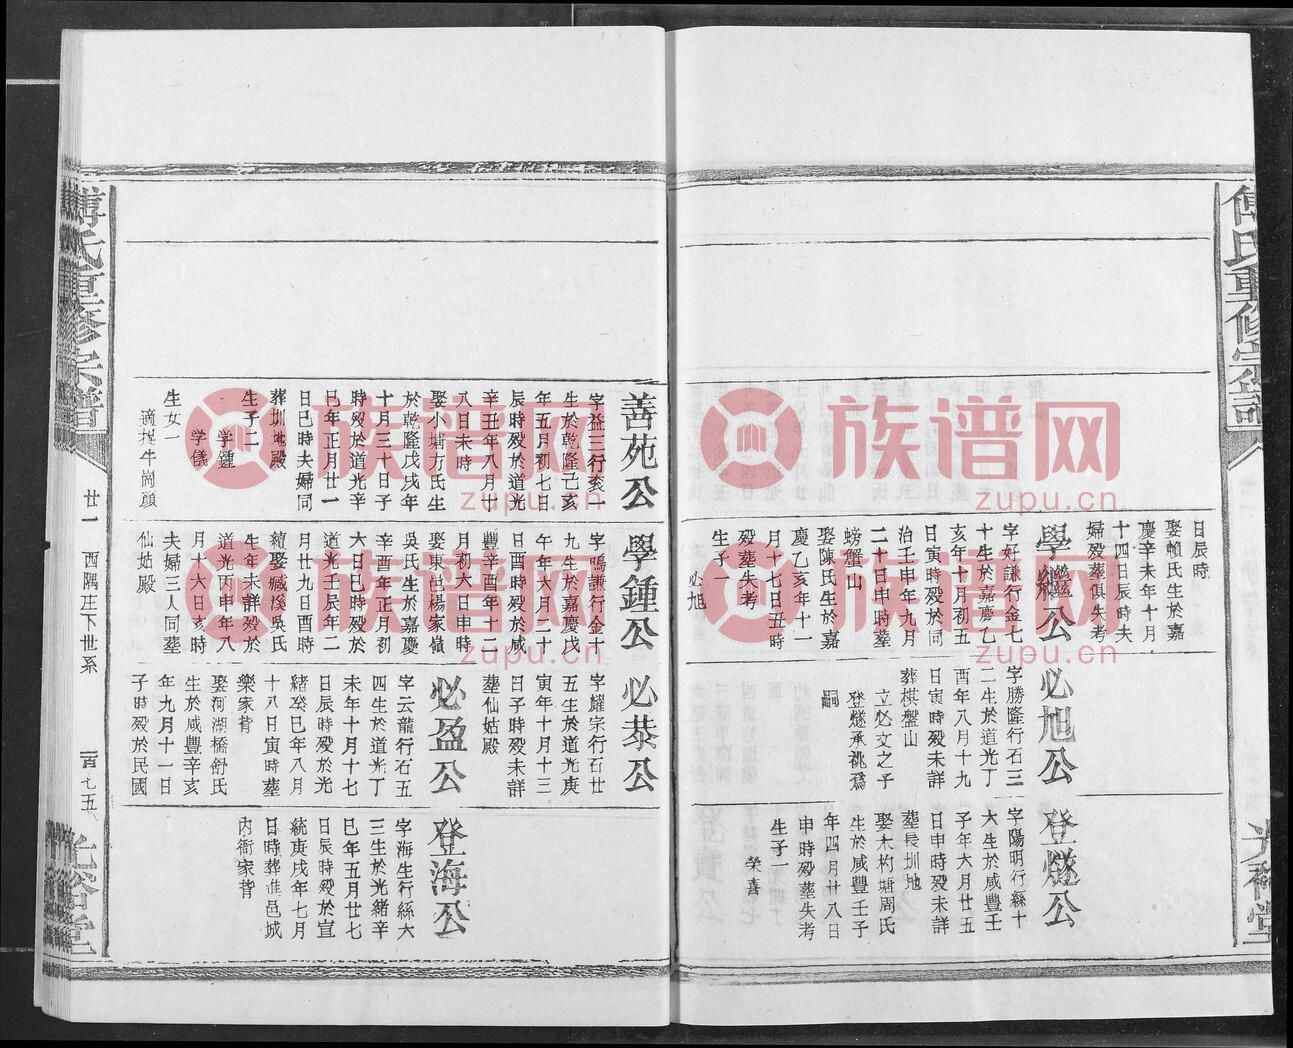 傅氏重修宗譜
日辰時
娶賴氏生於嘉
慶辛未年十月
十四日辰時夫
婦歿葬俱失考
學繼公
字好謙行金七
十生於嘉慶乙
亥年十月初五
日寅時歿於同
治壬申年九月
二十日申時葬
螃蟹山
娶陳氏生於嘉
慶乙亥年十一
月十七日丑時
歿葬失考
生子一
必旭
必旭公
字勝隆行石三
二生於道光丁
酉年八月十九
日寅時歿未詳
葬棋盤山
立必文之子
登燧承祧爲
嗣
登燧公
字陽明行縣十
大生於咸豐壬
子年六月廿五
日申時歿未詳
葬長圳地
娶木杓塘周氏
生於咸豐壬子
年四月廿八日
申時歿葬失考
生子一
榮喜
善苑公
字益三行亥一
生於乾隆己亥
年五月初七日
辰時歿於道光
辛丑年八月十
八日未時
娶小塘方氏生
於乾隆戊戌年
十月三十日子
時歿於道光辛
巳年正月廿一
日巳時夫婦同
葬圳地殿
生子二
學鍾
學儀
生女一
適捏牛崗顏
學鍾公
字鳴謙行金十
九生於嘉慶戊
午年六月二十
日酉時歿於咸
豐辛酉年十二
月初六日申時
娶東邑楊家嶺
吳氏生於嘉慶
辛酉年正月初
六日巳時歿於
道光壬辰年二
月廿九日酉時
續娶臧溪吳氏
生年未詳歿於
道光丙申年八
月十六日亥時
夫婦三人同葬
仙姑殿
必恭公
字耀宗行石廿
五生於道光庚
寅年十月十三
日子時歿未詳
葬仙姑殿
必盈公
字云龍行石五
四生於道光丁
未年十月十七
日辰時歿於光
緒癸巳年八月
十八日寅時葬
樂家背
娶河湖橋舒氏
生於咸豐辛亥
年九月十一日
子時歿於民國
登海公
字海生行縣大
三生於光緒辛
巳年五月廿七
日辰時歿於宣
統庚戌年七月
日時葬進邑城
內衙家背
傅氏重修宗譜
廿一
西隅庄下世系
一百七五
光裕堂
族谱网
zupu.cn
族谱网
zupu.cn
族谱网
zupu.cn
族谱网
zupu.cn